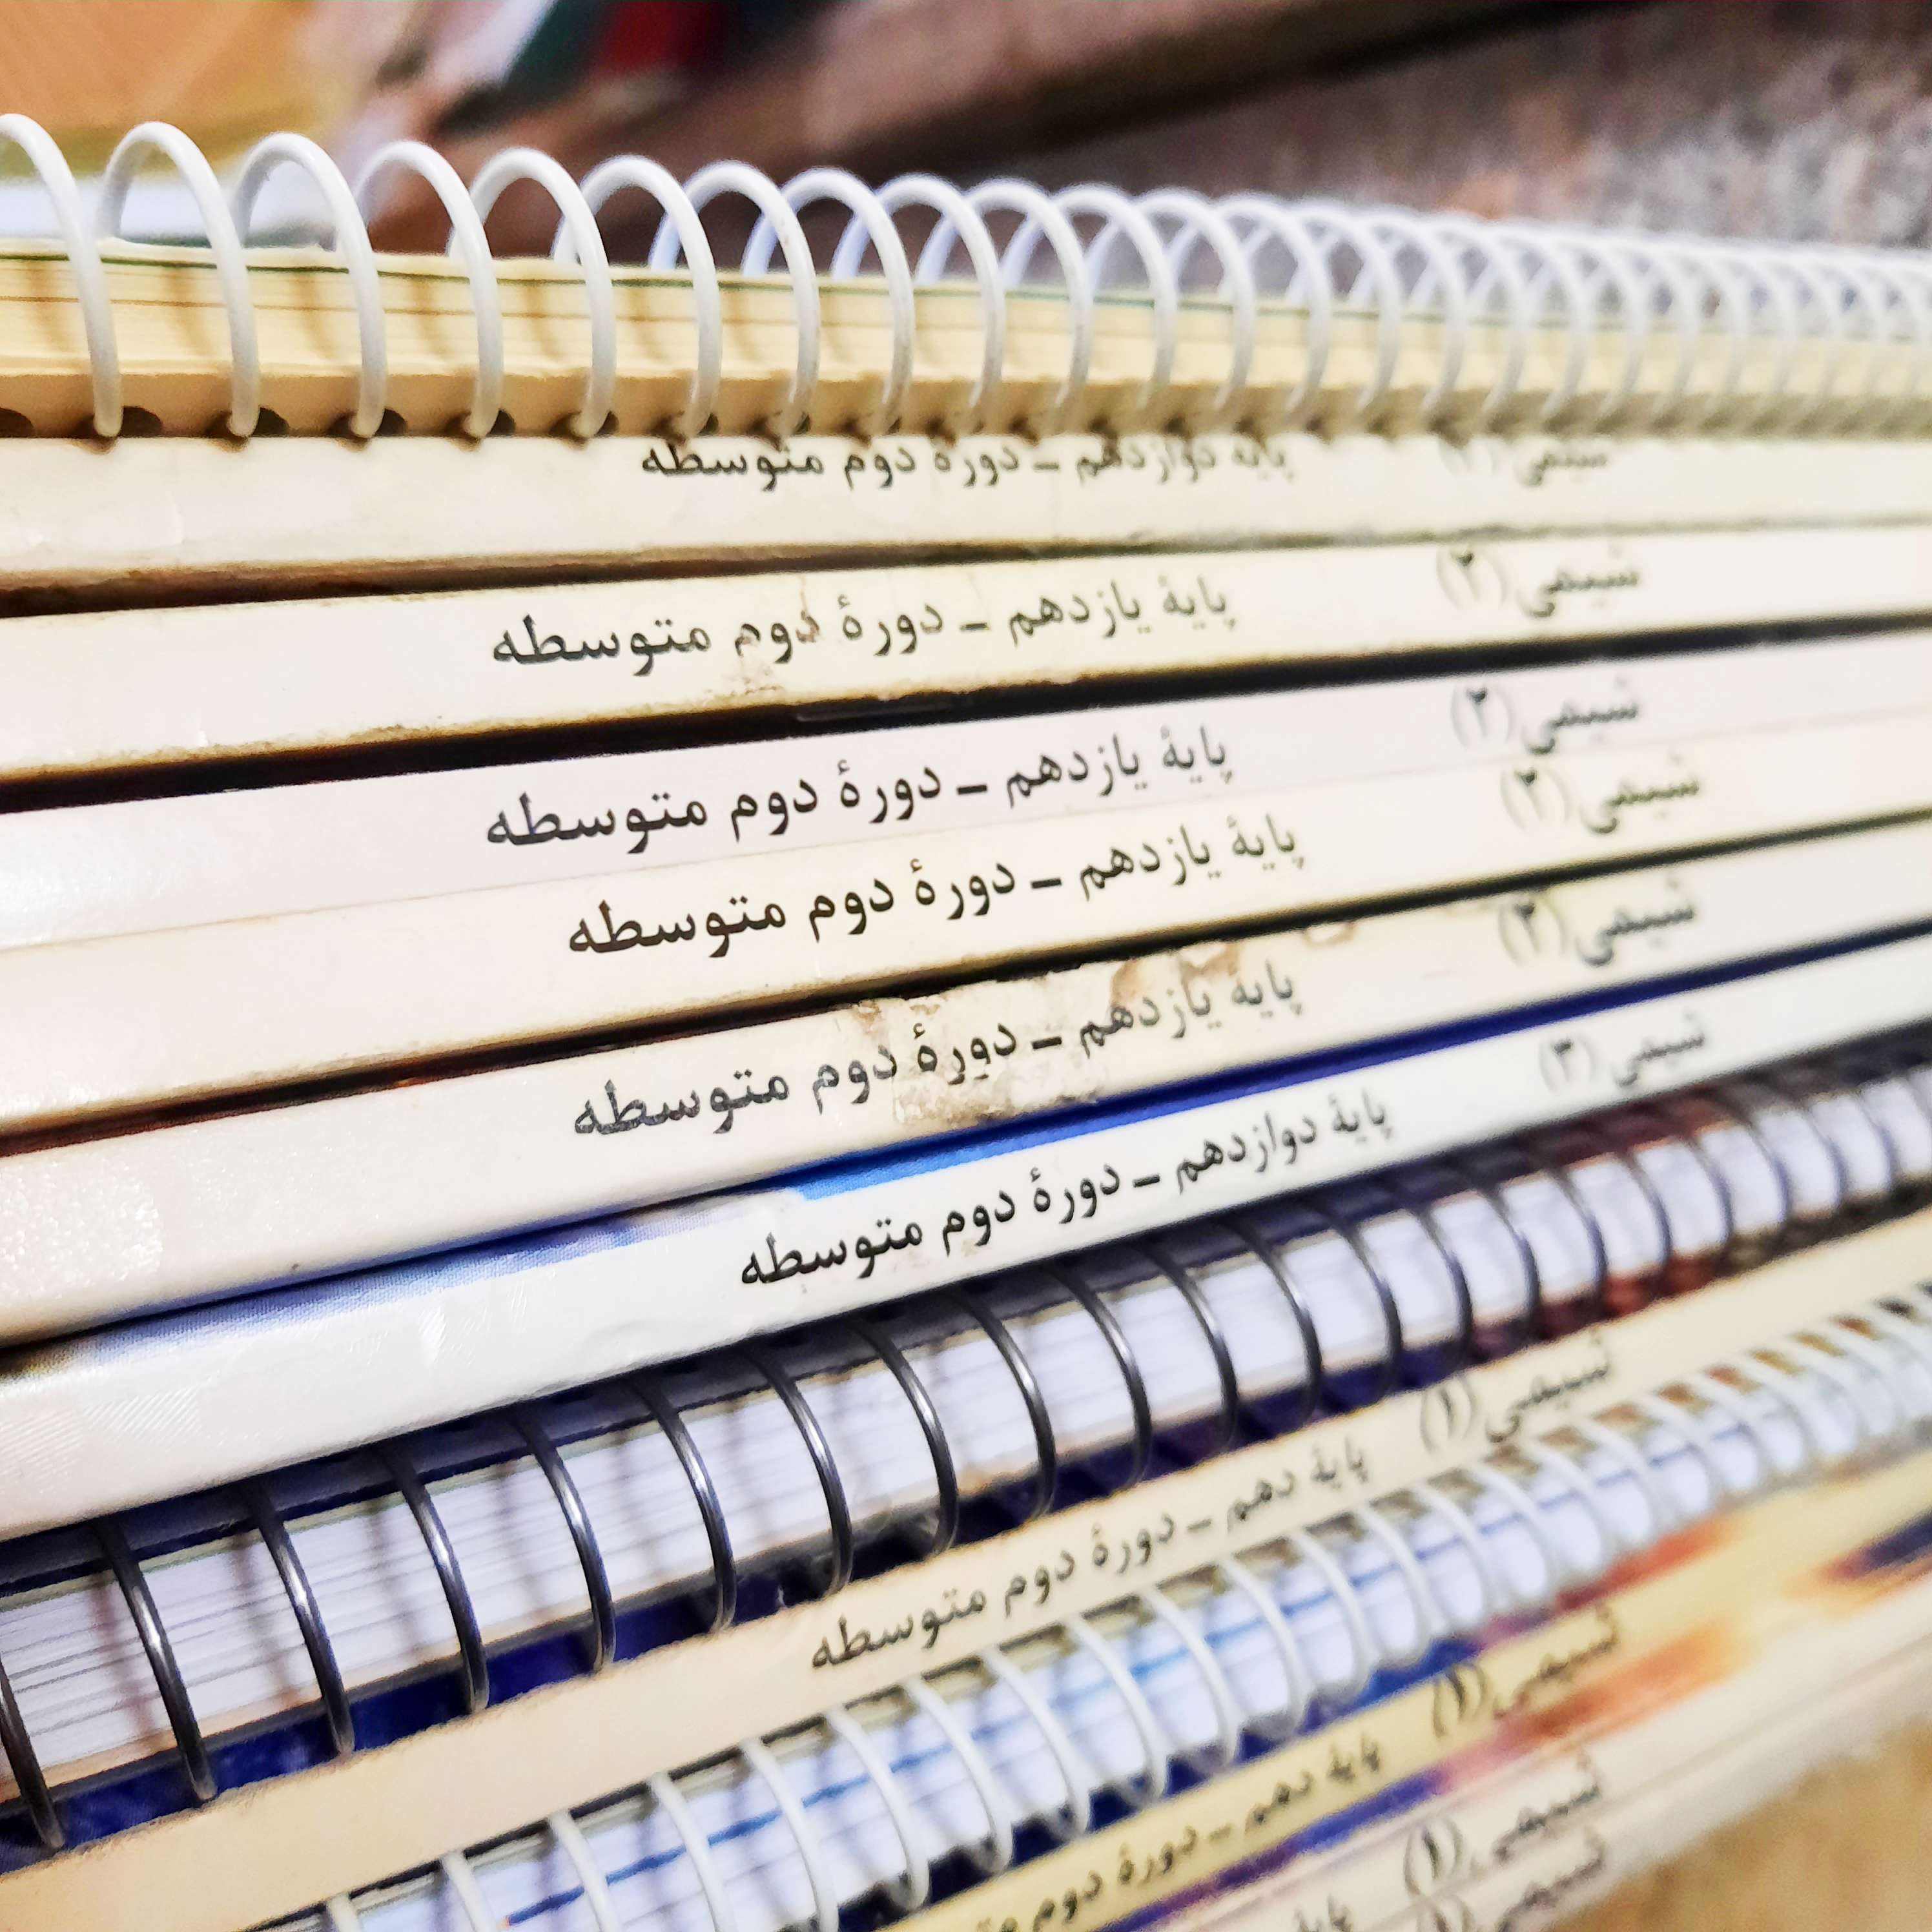 شیمی (۳) پایهٔ دوازدهم ـ دورهٔ دوم متوسطه
شیمی (۲) پایهٔ یازدهم ـ دورهٔ دوم متوسطه
شیمی (۲) پایهٔ یازدهم ـ دورهٔ دوم متوسطه
شیمی (۲) پایهٔ یازدهم ـ دورهٔ دوم متوسطه
شیمی (۲) پایهٔ یازدهم ـ دورهٔ دوم متوسطه
شیمی (۳) پایهٔ دوازدهم ـ دورهٔ دوم متوسطه
شیمی (۱) پایهٔ دهم ـ دورهٔ دوم متوسطه
شیمی (۱) پایهٔ دهم ـ دورهٔ دوم
شیمی (۱) پایهٔ
شیمی (۱)